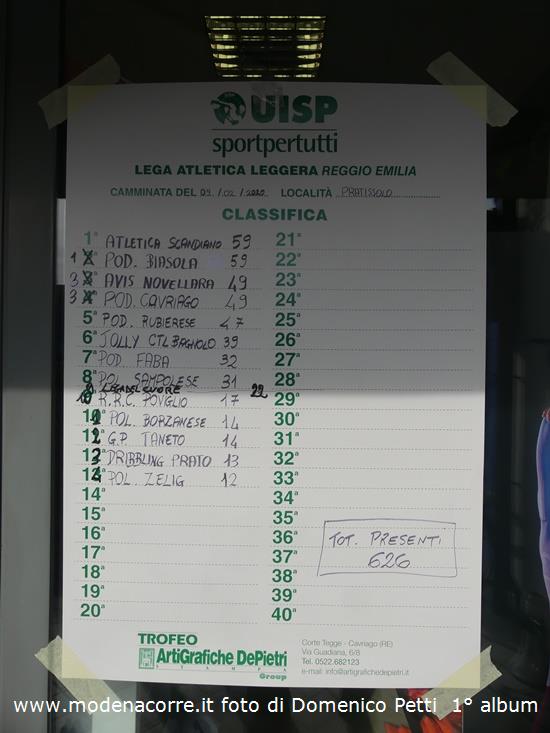 UISP
sportpertutti
LEGA ATLETICA LEGGERA REGGIO EMILIA
CAMMINATA DEL 09./02/2020 LOCALITÀ PRATISSOLO
CLASSIFICA
1ª ATLETICA SCANDIANO 59
1 POD. BIASOLA 59
3 AVIS NOVELLARA 49
3 POD. CAVRIAGO 49
5ª POD. RUBIERESE 47
6ª JOLLY CTL BAGNOLO 39
7ª POD. FABA 32
8ª POL. SAMPOLESE 31
9 LEGA DEL CUORE 22
10 R.R.C. POVIGLIO 17
11 POL. BORZANESE 14
12 G.P. TANETO 14
13 DRIBBLING PRATO 13
14 POL. ZELIG 12
14ª
15ª
16ª
17ª
18ª
19ª
20ª
21ª
22ª
23ª
24ª
25ª
26ª
27ª
28ª
29ª
30ª
31ª
32ª
33ª
34ª
35ª
36ª
37ª
38ª
39ª
40ª
TOT. PRESENTI
626
TROFEO
ArtiGrafiche DePietri
STAMPA
Group
Corte Tegge - Cavriago (RE)
Via Guadiana, 6/8
Tel. 0522.682123
e-mail: info@artigrafichedepietri.it
www.modenacorre.it foto di Domenico Petti 1° album